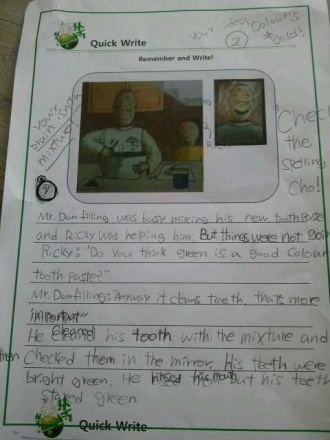 You're idea Colour is gold!
2
Quick Write
Remember and Write!
You're brain is a mixture!
"Check
the
Spelling
Cho!
Mr. Dunfilling was busy mixing his new toothpaste
and Ricky was helping him. But things were not
Ricky: "Do you think green is a good Colour
tooth paste?"
Mr. Dunfilling: "Anyway it cleans teeth, that's more
important"
He cleaned his tooth with the mixture and
then Checked them in the mirror. His teeth were
bright green. He rinsed his mouth but his teeth
stayed green
Quick Write